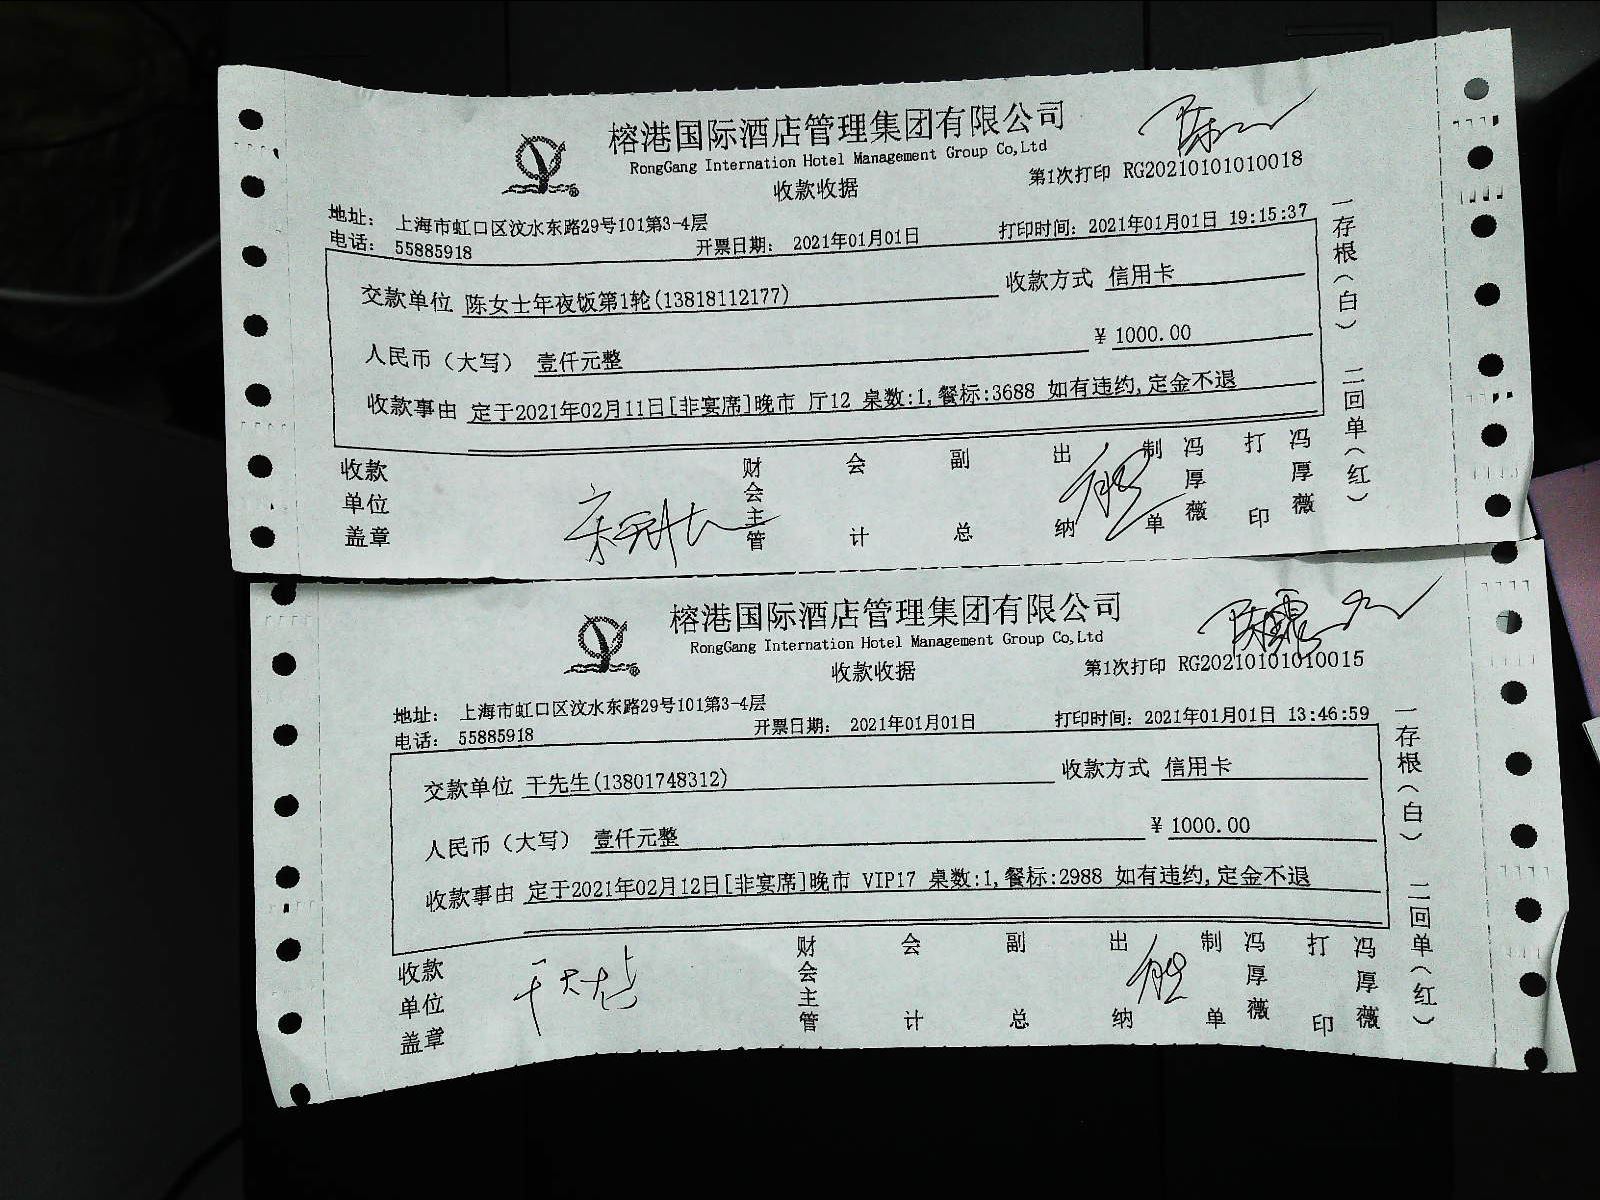 榕港国际酒店管理集团有限公司
RongGang Internation Hotel Management Group Co,Ltd
收款收据
第1次打印 RG20210101010018
地址： 上海市虹口区汶水东路29号101第3-4层
电话： 55885918
开票日期： 2021年01月01日
打印时间：2021年01月01日 19:15:37
交款单位 陈女士年夜饭第1轮(13818112177)
收款方式 信用卡
人民币（大写） 壹仟元整
¥ 1000.00
收款事由 定于2021年02月11日[非宴席]晚市 厅12 桌数:1,餐标:3688 如有违约,定金不退
收款单位盖章
财会主管
会计
副总
出纳
制单
冯厚薇
打印
冯厚薇
一存根（白） 二回单（红）
榕港国际酒店管理集团有限公司
RongGang Internation Hotel Management Group Co,Ltd
收款收据
第1次打印 RG20210101010015
地址： 上海市虹口区汶水东路29号101第3-4层
电话： 55885918
开票日期： 2021年01月01日
打印时间：2021年01月01日 13:46:59
交款单位 干先生(13801748312)
收款方式 信用卡
人民币（大写） 壹仟元整
¥ 1000.00
收款事由 定于2021年02月12日[非宴席]晚市 VIP17 桌数:1,餐标:2988 如有违约,定金不退
收款单位盖章
财会主管
会计
副总
出纳
制单
冯厚薇
打印
冯厚薇
一存根（白） 二回单（红）